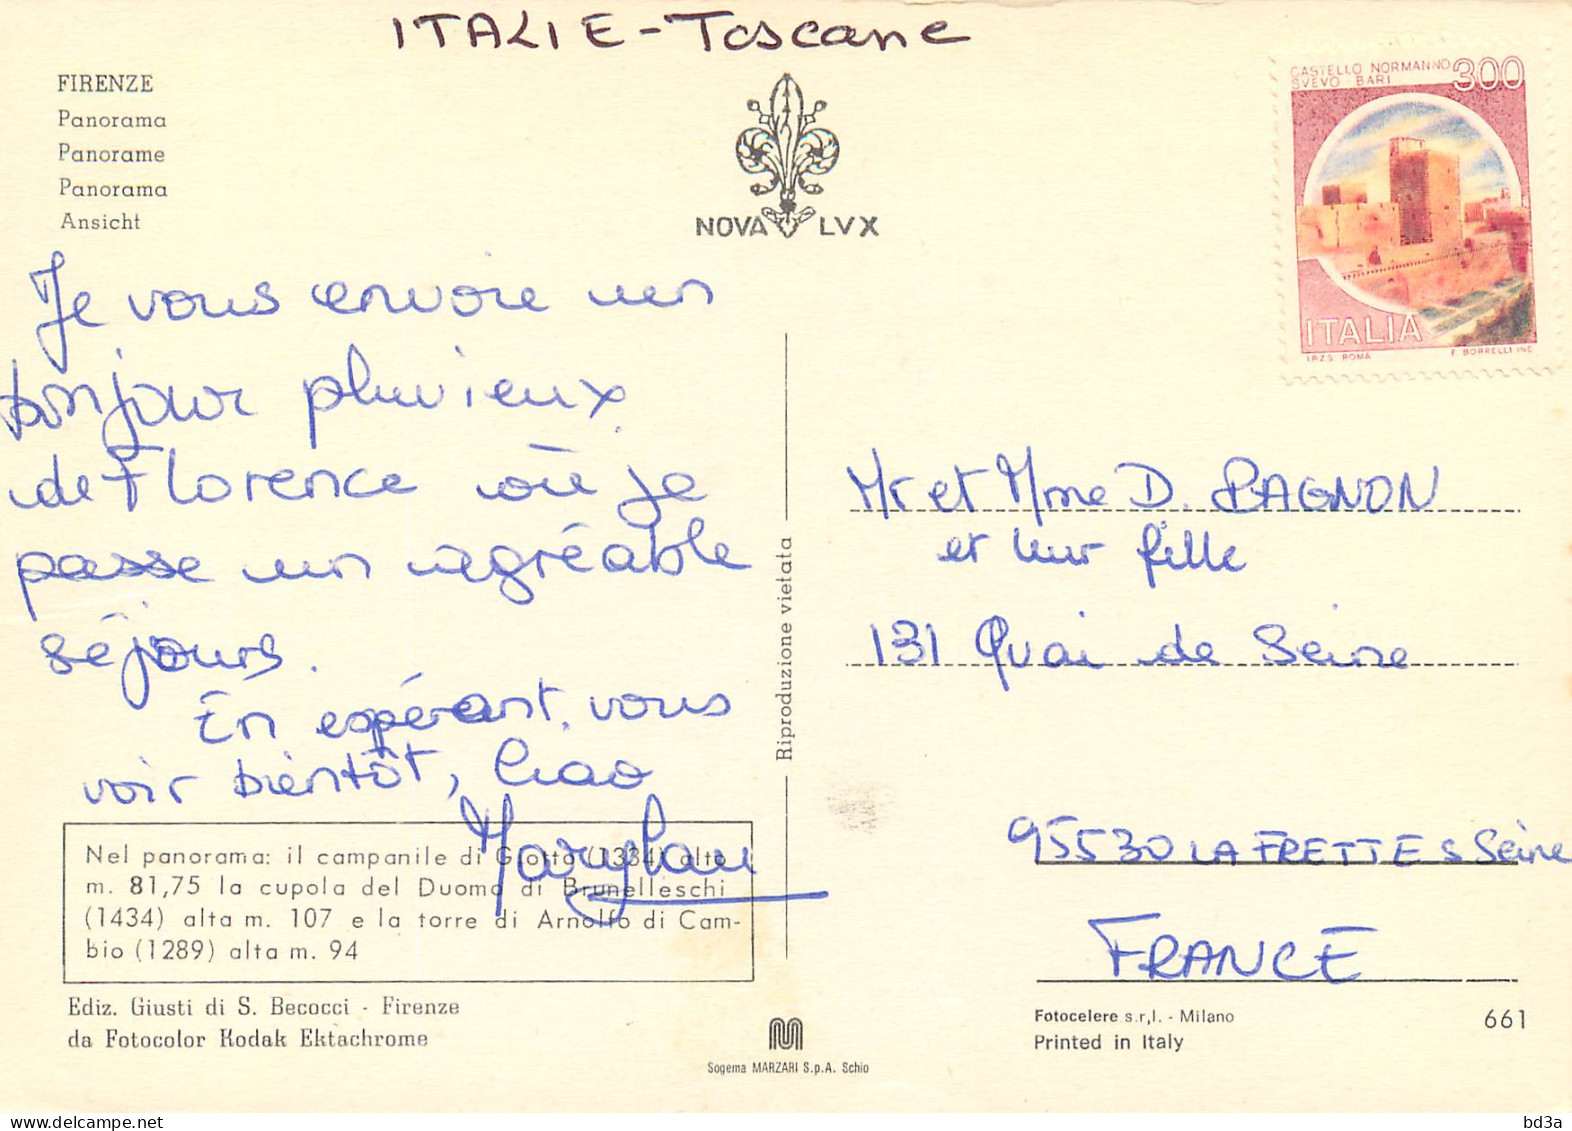 ITALIE - Toscane
FIRENZE
Panorama
Panorame
Panorama
Ansicht
NOVA LVX
CASTELLO NORMANNO
SVEVO - BARI
300
ITALIA
I.P.Z.S. ROMA
F. BORRELLI INC.
Je vous envoie un
bonjour pluvieux
de Florence où je
passe un agréable
séjours.
En espérant vous
voir bientôt, Ciao
Riproduzione vietata
Mr et Mme D. PAGNON
et leur fille
131 Quai de Seine
95530 LA FRETTE s Seine
FRANCE
Nel panorama: il campanile di Giotto (1334) alto
m. 81,75 la cupola del Duomo di Brunelleschi
(1434) alta m. 107 e la torre di Arnolfo di Cam-
bio (1289) alta m. 94
Ediz. Giusti di S. Becocci - Firenze
da Fotocolor Kodak Ektachrome
Sogema MARZARI S.p.A. Schio
Fotocelere s.r,l. - Milano
Printed in Italy
661
delcampe.net
bd3a